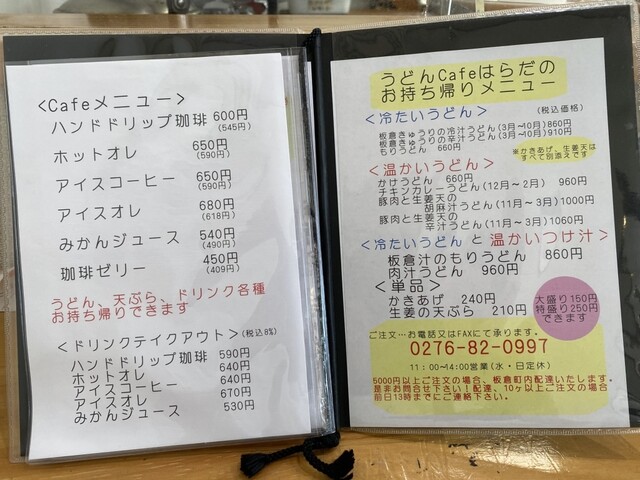 <Cafeメニュー>
ハンドドリップ珈琲 600円
(545円)
ホットオレ 650円
(590円)
アイスコーヒー 650円
(590円)
アイスオレ 680円
(618円)
みかんジュース 540円
(490円)
珈琲ゼリー 450円
(409円)
うどん、天ぷら、ドリンク各種
お持ち帰りできます
<ドリンクテイクアウト>(税込8%)
ハンドドリップ珈琲 590円
ホットオレ 640円
アイスコーヒー 640円
アイスオレ 670円
みかんジュース 530円
うどんCafeはらだの
お持ち帰りメニュー
<冷たいうどん> (税込価格)
板倉きゅうりの冷汁うどん(3月~10月)860円
板倉きゅうりの辛汁うどん(3月~10月)910円
もりうどん 660円
※かきあげ、生姜天は
すべて別添えです
<温かいうどん>
かけうどん 660円
チキンカレーうどん(12月~2月) 960円
豚肉と生姜天の
胡麻汁うどん(11月~3月)1000円
豚肉と生姜天の
辛汁うどん(11月~3月)1060円
<冷たいうどん と 温かいつけ汁>
板倉汁のもりうどん 860円
肉汁うどん 960円
<単品>
かきあげ 240円
生姜の天ぷら 210円
大盛り150円
特盛り250円
できます
ご注文…お電話又はFAXにて承ります。
0276-82-0997
11:00~14:00営業(水・日定休)
5000円以上ご注文の場合、板倉町内配達いたします。
是非お問合せ下さい!配達、10ヶ以上ご注文の場合
前日13時までにご連絡下さい。